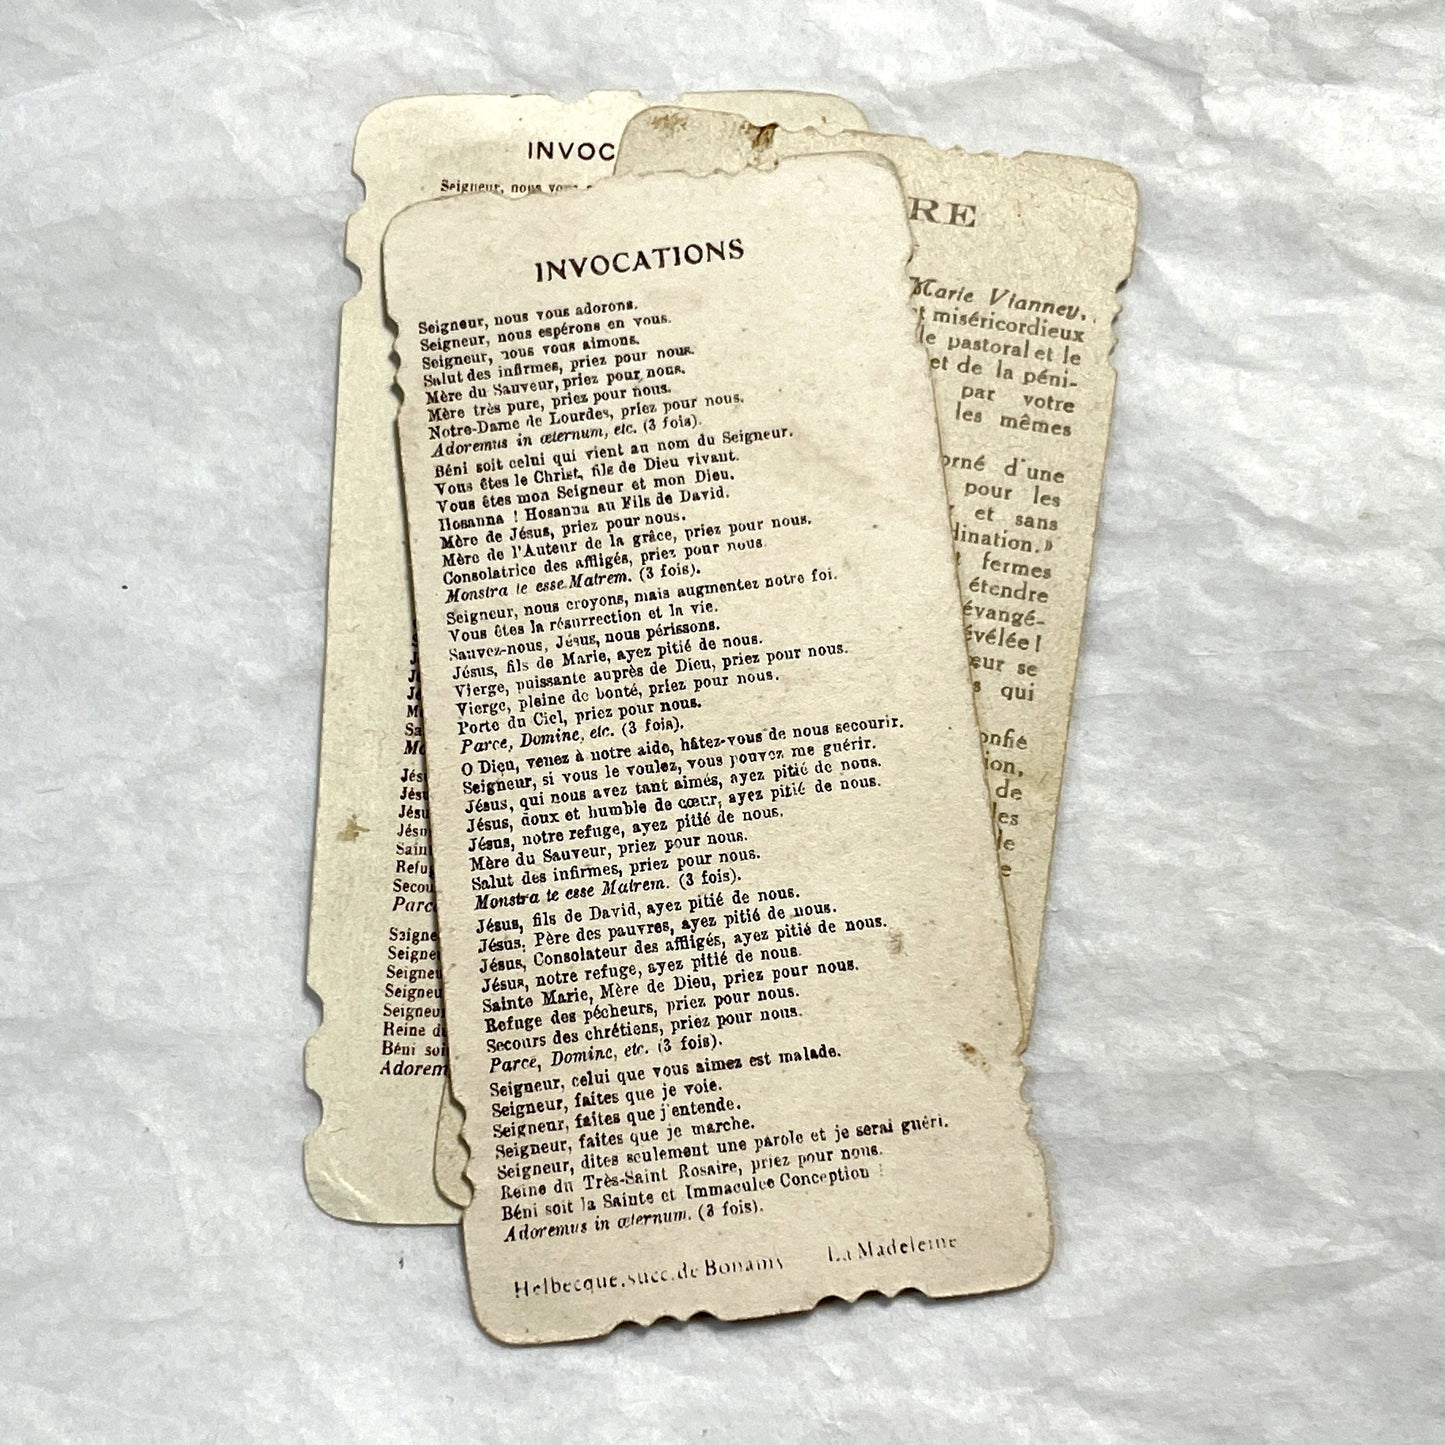 INVOC
Seigneur, nous vous
RE
Marie Vianney.
miséricordieux
le pastoral et le
et de la péni-
par votre
les mêmes
orné d'une
pour les
et sans
dination.»
fermes
étendre
évangé-
évélée!
eur se
qui
onfié
ion,
de
les
le
e
INVOCATIONS
Seigneur, nous vous adorons.
Seigneur, nous espérons en vous.
Seigneur, nous vous aimons.
Salut des infirmes, priez pour nous.
Mère du Sauveur, priez pour nous.
Mère très pure, priez pour nous.
Notre-Dame de Lourdes, priez pour nous.
Adoremus in æternum, etc. (3 fois).
Béni soit celui qui vient au nom du Seigneur.
Vous êtes le Christ, fils de Dieu vivant.
Vous êtes mon Seigneur et mon Dieu.
Hosanna ! Hosanna au Fils de David.
Mère de Jésus, priez pour nous.
Mère de l'Auteur de la grâce, priez pour nous.
Consolatrice des affligés, priez pour nous.
Monstra te esse Matrem. (3 fois).
Seigneur, nous croyons, mais augmentez notre foi.
Vous êtes la résurrection et la vie.
Sauvez-nous, Jésus, nous périssons.
Jésus, fils de Marie, ayez pitié de nous.
Vierge, puissante auprès de Dieu, priez pour nous.
Vierge, pleine de bonté, priez pour nous.
Porte du Ciel, priez pour nous.
Parce, Domine, etc. (3 fois).
O Dieu, venez à notre aide, hâtez-vous de nous secourir.
Seigneur, si vous le voulez, vous pouvez me guérir.
Jésus, qui nous avez tant aimés, ayez pitié de nous.
Jésus, doux et humble de cœur, ayez pitié de nous.
Jésus, notre refuge, ayez pitié de nous.
Mère du Sauveur, priez pour nous.
Salut des infirmes, priez pour nous.
Monstra te esse Matrem. (3 fois).
Jésus, fils de David, ayez pitié de nous.
Jésus, Père des pauvres, ayez pitié de nous.
Jésus, Consolateur des affligés, ayez pitié de nous.
Jésus, notre refuge, ayez pitié de nous.
Sainte Marie, Mère de Dieu, priez pour nous.
Refuge des pécheurs, priez pour nous.
Secours des chrétiens, priez pour nous.
Parce, Domine, etc. (3 fois).
Seigneur, celui que vous aimez est malade.
Seigneur, faites que je voie.
Seigneur, faites que j'entende.
Seigneur, faites que je marche.
Seigneur, dites seulement une parole et je serai guéri.
Reine du Très-Saint Rosaire, priez pour nous.
Béni soit la Sainte et Immaculée Conception !
Adoremus in æternum. (3 fois).
Helbecque.succ.de Bonamy La Madeleine
Jés
Jés
Jésu
Jésu
Sain
Refu
Secou
Parc
Saigne
Seigne
Seigneu
Seigneu
Seigneu
Reine d
Béni soi
Adorem